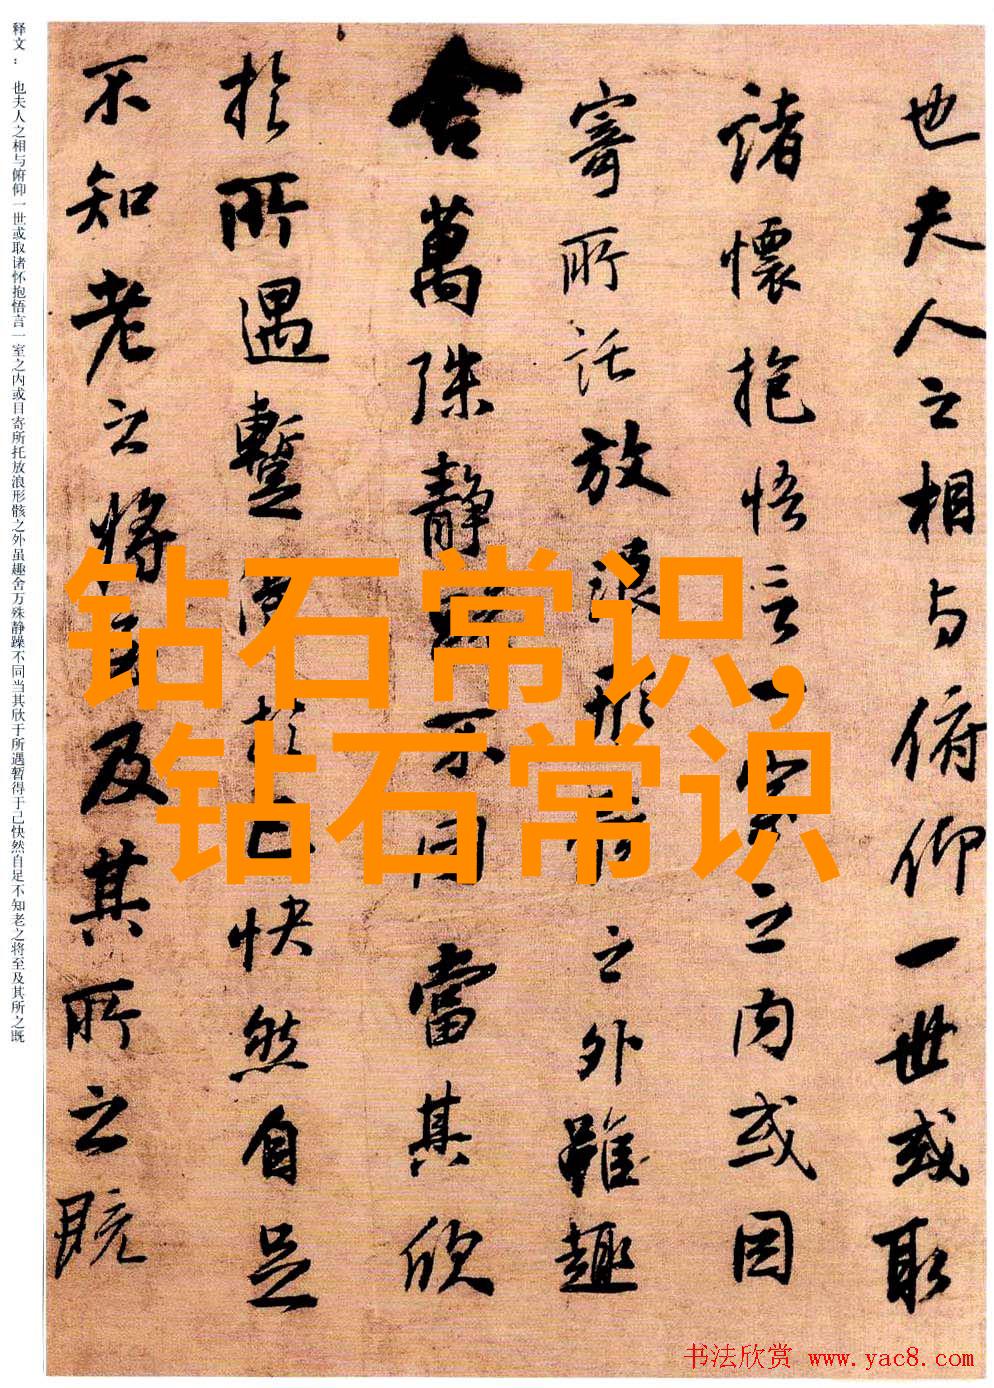 释文： 也夫人之相与俯仰一世或取诸怀抱悟言一室之内或目寄所托放浪形骸之外虽趣舍万殊静躁不同当其欣于所遇暂得于己快然自足不知老之将至及其所之既
也夫人之相与俯仰一世或取
诸懷抱悟言一室之内或因
寄所託放浪形骸之外雖趣
舍萬殊静躁不同當其欣
於所遇蹔得於己快然自足
不知老之将至及其所之既
钻石常识,
钻石常识
书法欣赏 www.yac8.com